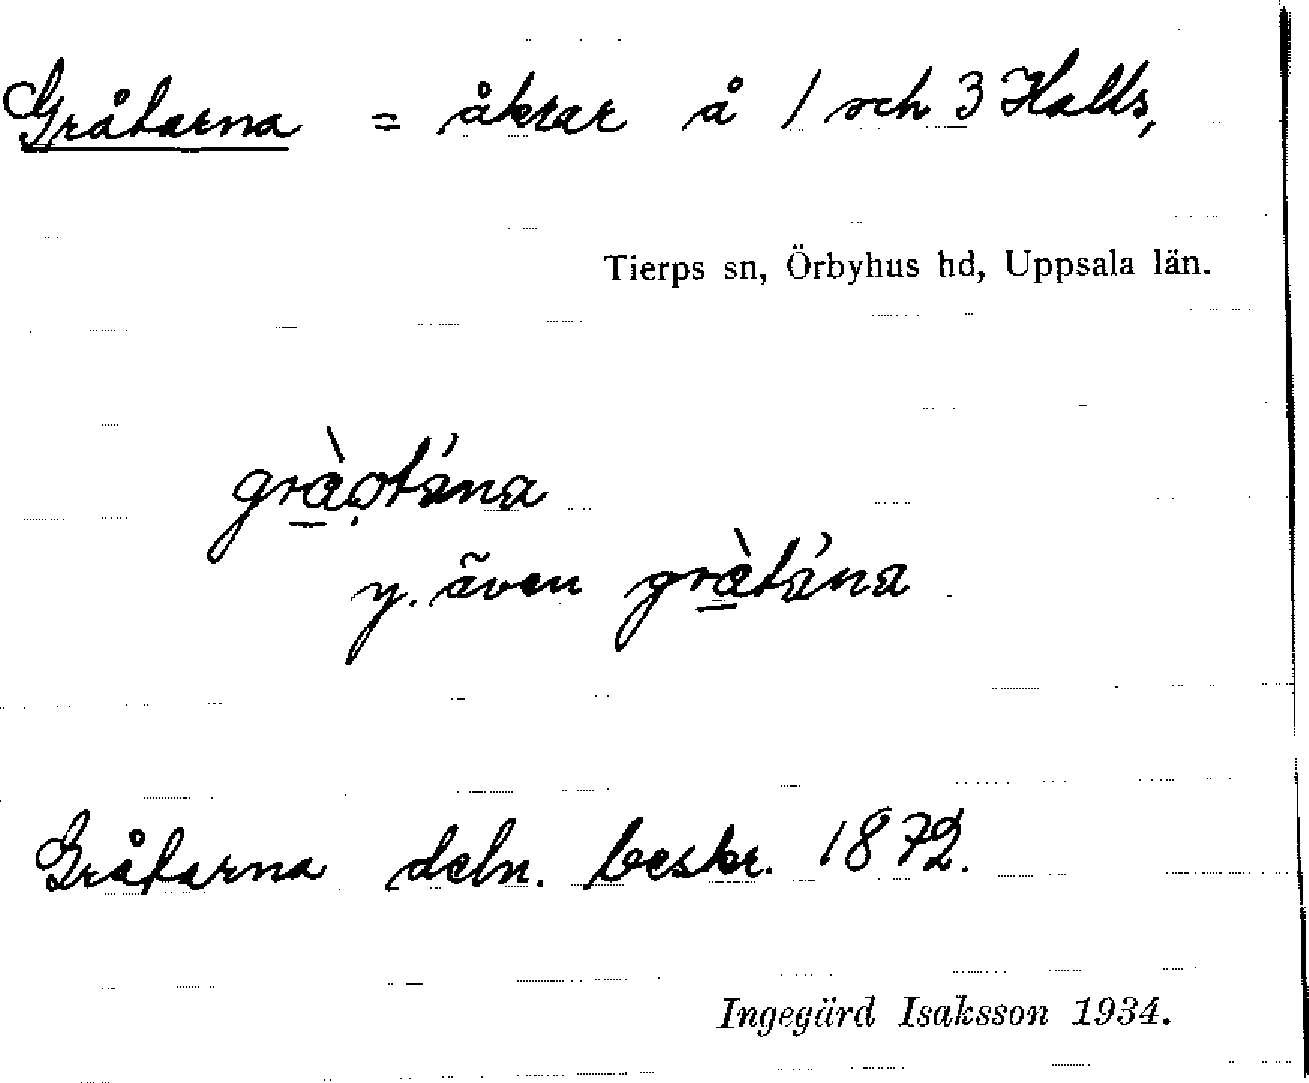 Gråtarna = åkrar å 1 och 3 Halls,
Tierps sn, Örbyhus hd, Uppsala län.
y. även
Gråtarna deln. beskr. 1872.
Ingegärd Isaksson 1934.